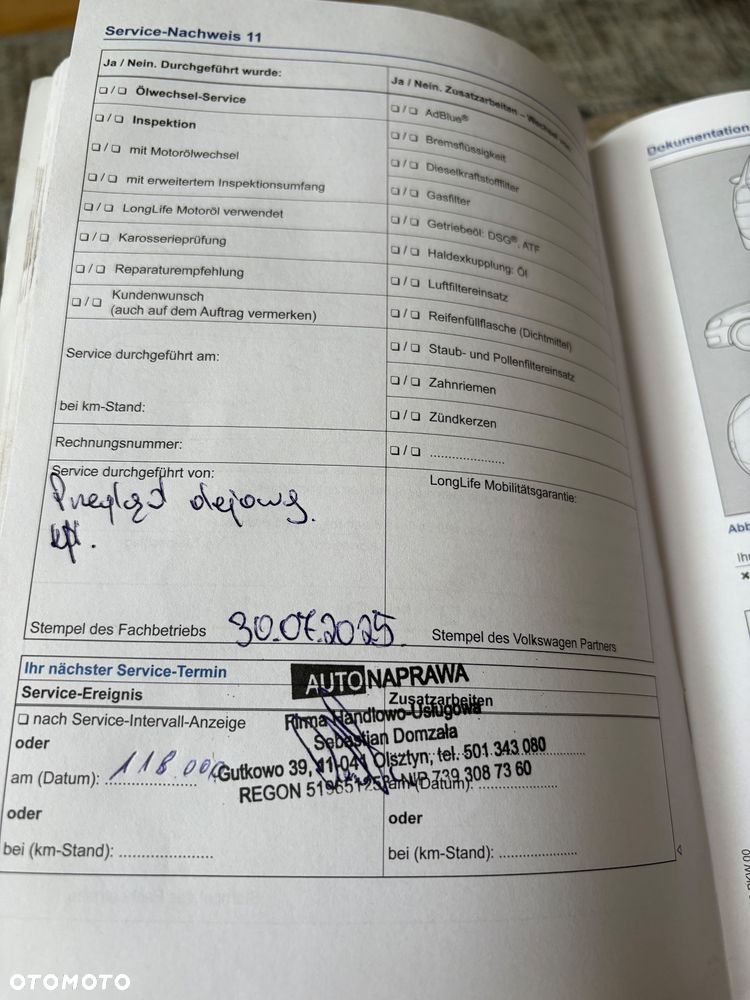 Service-Nachweis 11
Ja / Nein. Durchgeführt wurde:
❏ / ❏ Ölwechsel-Service
❏ / ❏ Inspektion
❏ / ❏ mit Motorölwechsel
❏ / ❏ mit erweitertem Inspektionsumfang
❏ / ❏ LongLife Motoröl verwendet
❏ / ❏ Karosserieprüfung
❏ / ❏ Reparaturempfehlung
❏ / ❏ Kundenwunsch
(auch auf dem Auftrag vermerken)
Service durchgeführt am:
bei km-Stand:
Rechnungsnummer:
Service durchgeführt von:
Przegląd olejowy.
Stempel des Fachbetriebs
30.07.2025
Ja / Nein. Zusatzarbeiten –
❏ / ❏ AdBlue®
❏ / ❏ Bremsflüssigkeit
❏ / ❏ Dieselkraftstofffilter
❏ / ❏ Gasfilter
❏ / ❏ Getriebeöl: DSG®, ATF
❏ / ❏ Haldexkupplung: Öl
❏ / ❏ Luftfiltereinsatz
❏ / ❏ Reifenfüllflasche (Dichtmittel)
❏ / ❏ Staub- und Pollenfiltereinsatz
❏ / ❏ Zahnriemen
❏ / ❏ Zündkerzen
❏ / ❏ .....................
LongLife Mobilitätsgarantie:
Stempel des Volkswagen Partners
Ihr nächster Service-Termin
Service-Ereignis
❏ nach Service-Intervall-Anzeige
oder
am (Datum): 118 000
oder
bei (km-Stand): .....................
Zusatzarbeiten
am (Datum): .....................
oder
bei (km-Stand): .....................
AUTO NAPRAWA
Firma Handlowo-Usługowa
Sebastian Domzała
Gutkowo 39, 11-041 Olsztyn, tel. 501 343 080
REGON NIP 739 308 73 60
Dokumentation
OTOMOTO